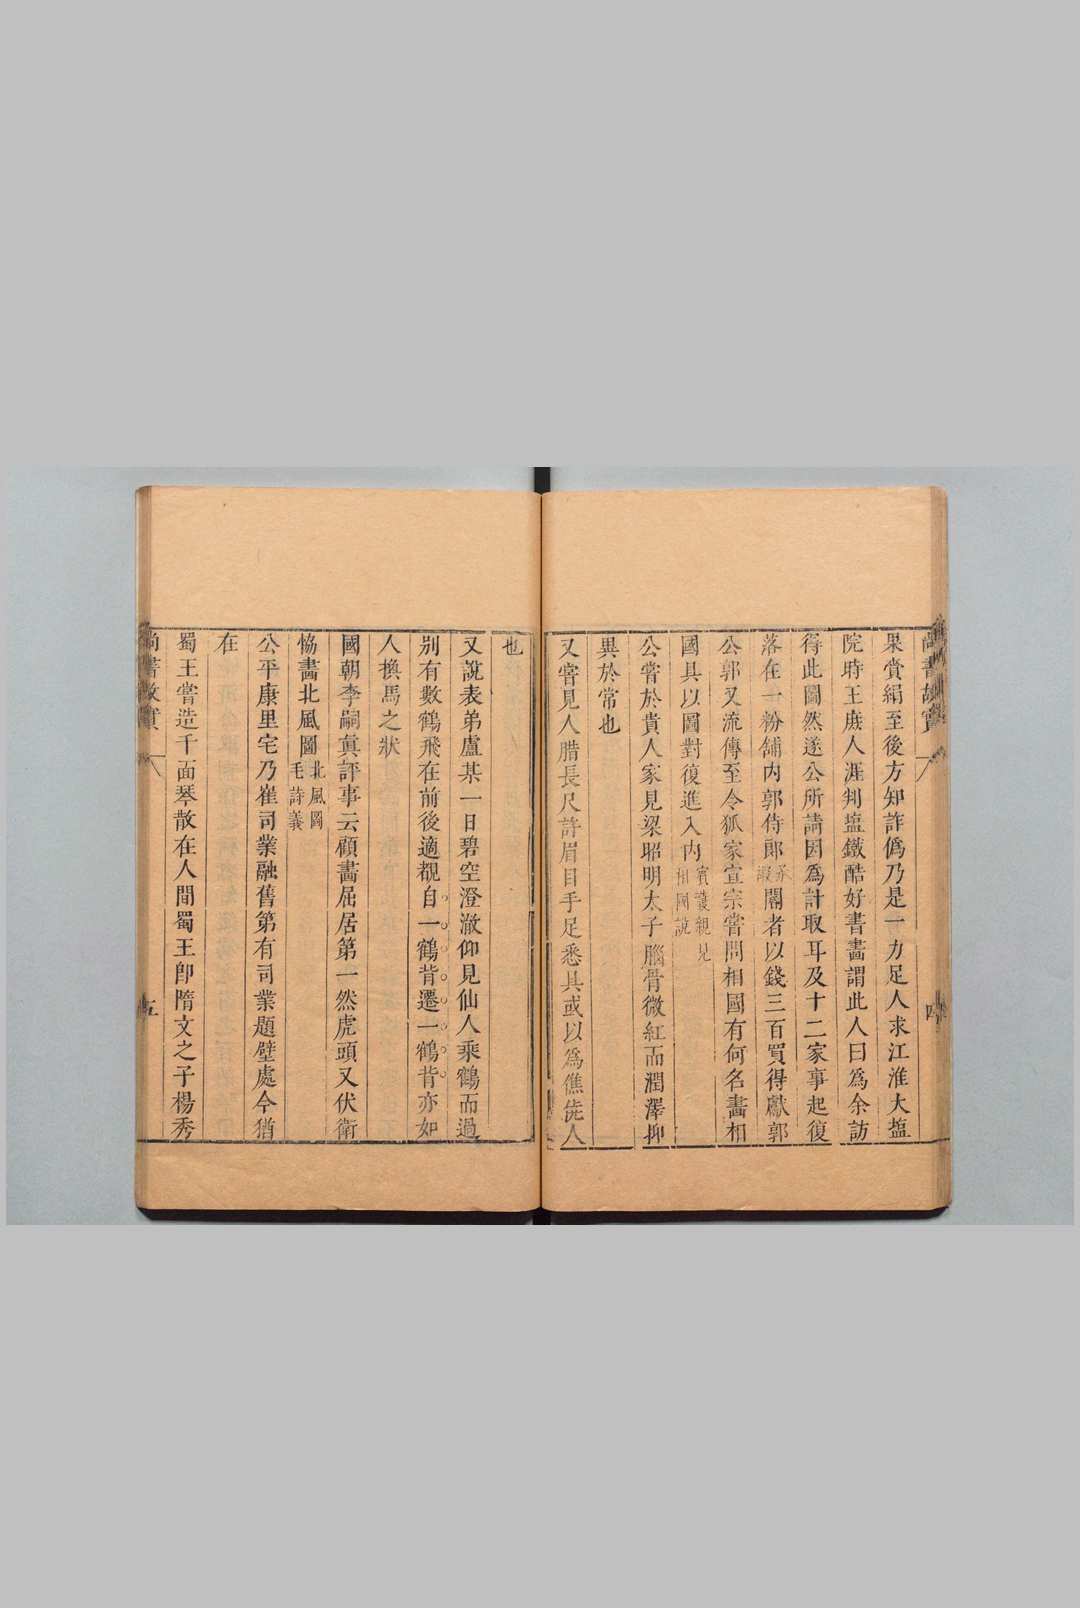 尚書故實
四
果賞絹至後方知詐偽乃是一力足人求江淮大塩
院時王庶人涯判塩鐵酷好書畫謂此人曰為余訪
得此圖然遂公所請因為計取耳及十二家事起復
落在一粉舖內郭侍郎承嘏閽者以錢三百買得獻郭
公郭又流傳至令狐家宣宗嘗問相國有何名畫相
國具以圖對復進入內賓護親見相國說
公嘗於貴人家見梁昭明太子腦骨微紅而潤澤抑
異於常也
又嘗見人腊長尺許眉目手足悉具或以為僬僥人
也
又說表弟盧某一日碧空澄澈仰見仙人乘鶴而過
別有數鶴飛在前後適覩自一鶴背遷一鶴背亦如
人換馬之狀
國朝李嗣真評事云顧畫屈居第一然虎頭又伏衛
恊畫北風圖北風圖毛詩義
公平康里宅乃崔司業融舊第有司業題壁處今猶
在
蜀王嘗造千面琴散在人間蜀王卽隋文之子楊秀
尚書故實
五